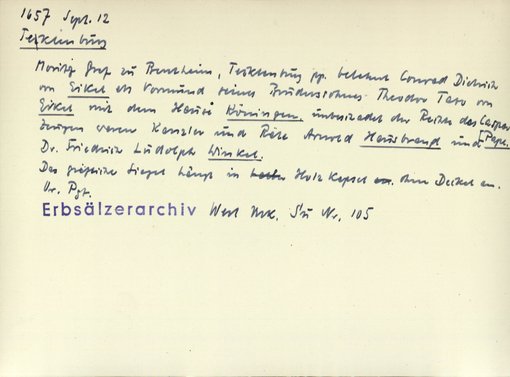 1657 Sept. 12
Tecklenburg
Moritz Graf zu Bentheim, Tecklenburg pp. belehnt Conrad Dietrich
von Eikel als Vormund seines Brudersohnes Theodor Tato von
Eikel mit dem Hause Köningen unbeschadet der Rechte des Caspar Pape.
Zeugen waren Kanzler und Räte Arnold Hausbrand und
Dr. Friedrich Ludolph Winkel.
Das gräfliche Siegel hängt in Holz Kapsel ohne Deckel an.
Or. Pgt.
Erbsälzerarchiv Werl Urk. Nr. 105